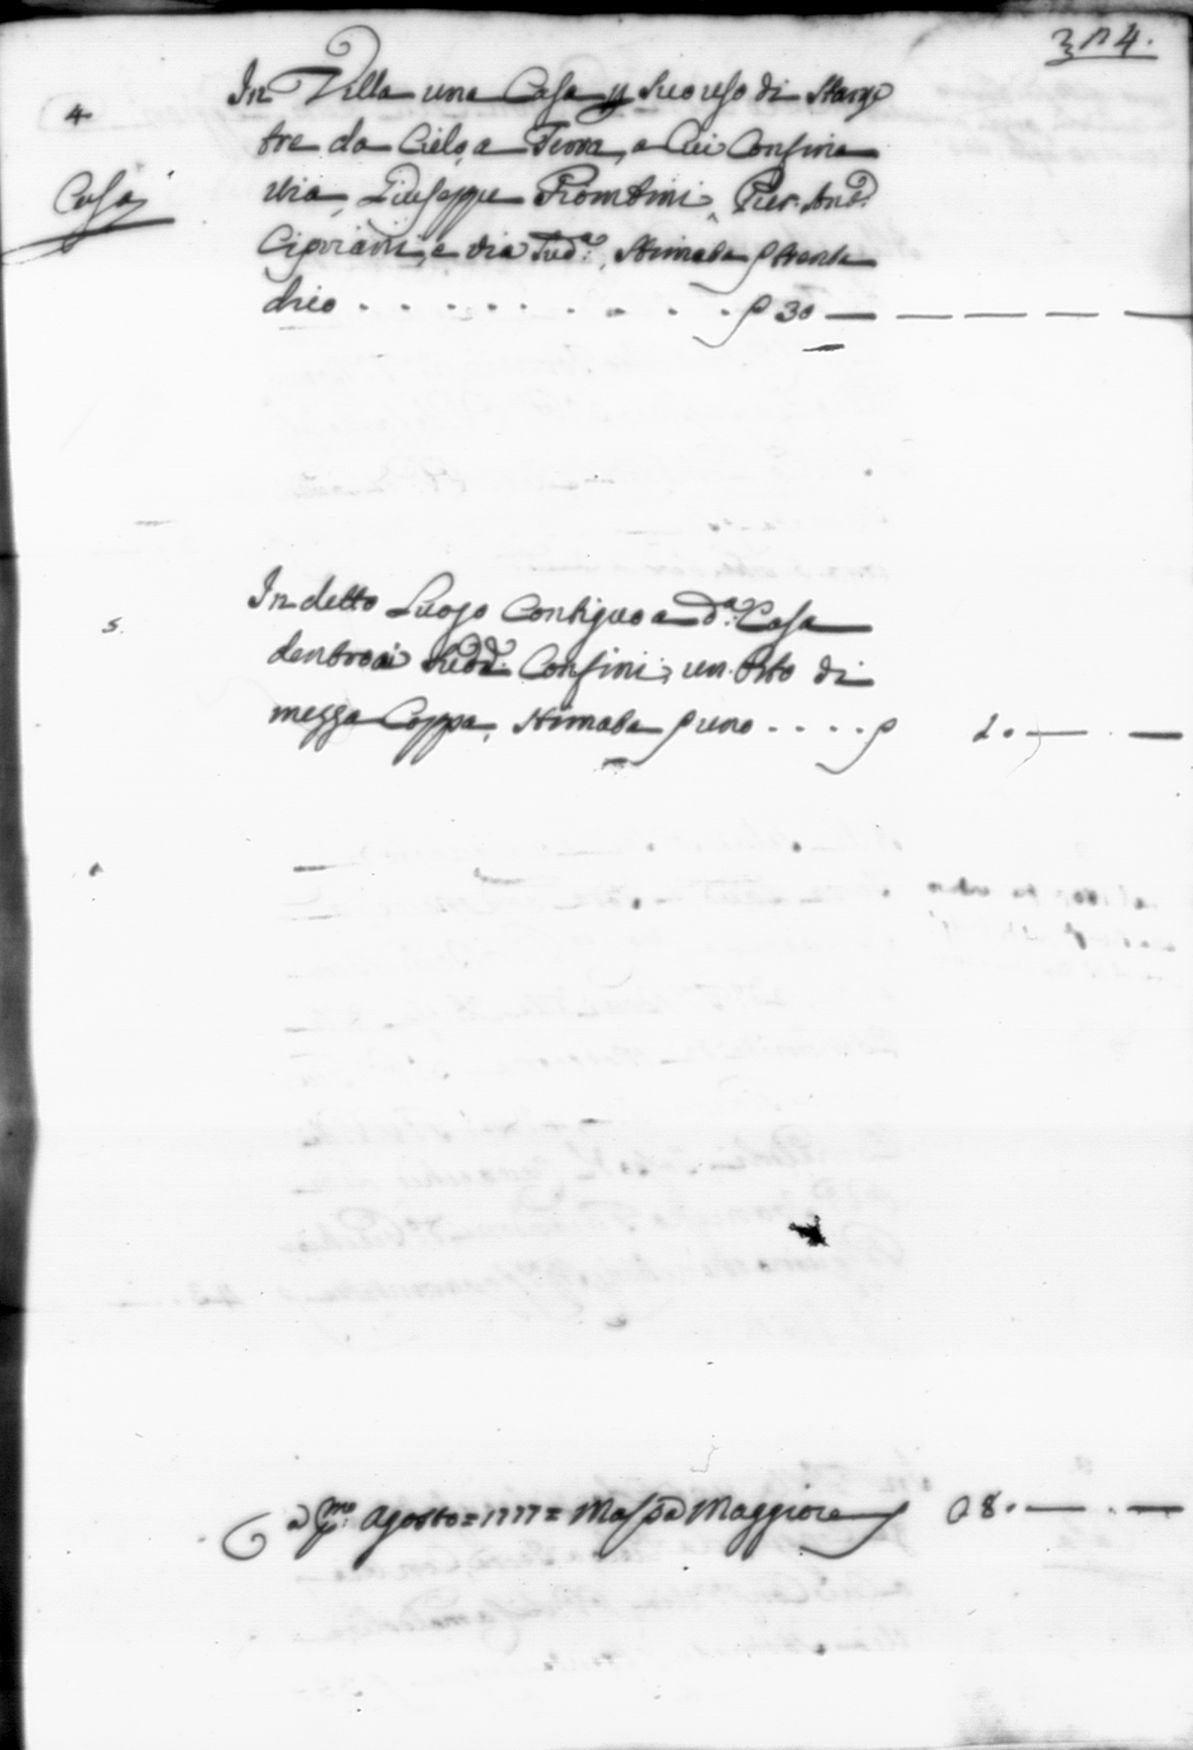 304.
4
In Villa una Casa p suo uso di Stanze
tre da Cielo, a Terra, a Cui Confina
Casa
via, Giuseppe Piombini, Pier: And.
Cipriani, e via Sud.ª, Stimata trenta
30
5.
In detto Luogo Contiguo a d.ª Casa
dentro ai Sudd. Confini, un Orto di
mezza Coppa, Stimata uno . . . .
1.
a p.mo Agosto = 1777 = Massa Maggiore
88.